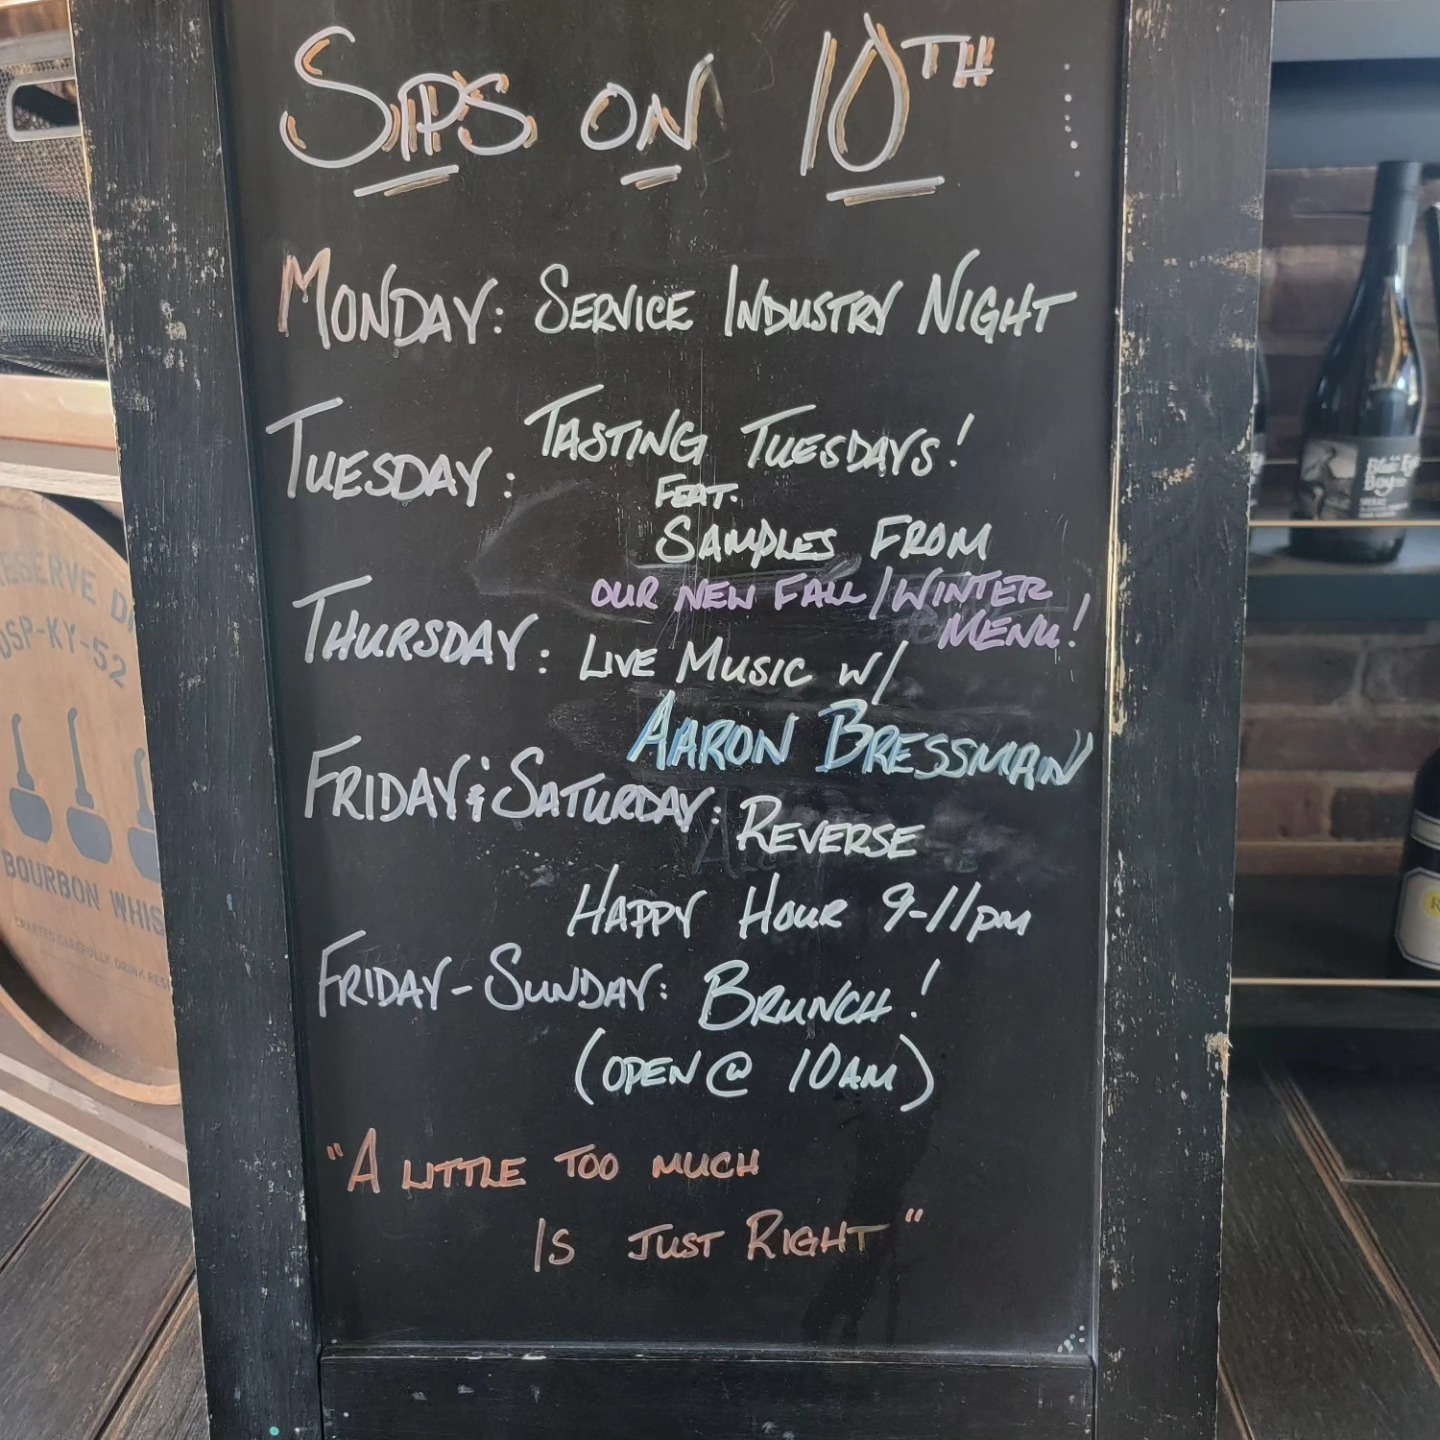 SIPS ON 10TH
MONDAY: SERVICE INDUSTRY NIGHT
TUESDAY: TASTING TUESDAYS!
FEAT.
SAMPLES FROM
OUR NEW FALL/WINTER
MENU!
THURSDAY: LIVE MUSIC W/
AARON BRESSMAN
FRIDAY & SATURDAY: REVERSE
HAPPY HOUR 9-11PM
FRIDAY-SUNDAY: BRUNCH!
(OPEN @ 10AM)
"A LITTLE TOO MUCH
IS JUST RIGHT"
DSP-KY-52
BOURBON WHIS
CRAFTED CAREFULLY. DRINK RES